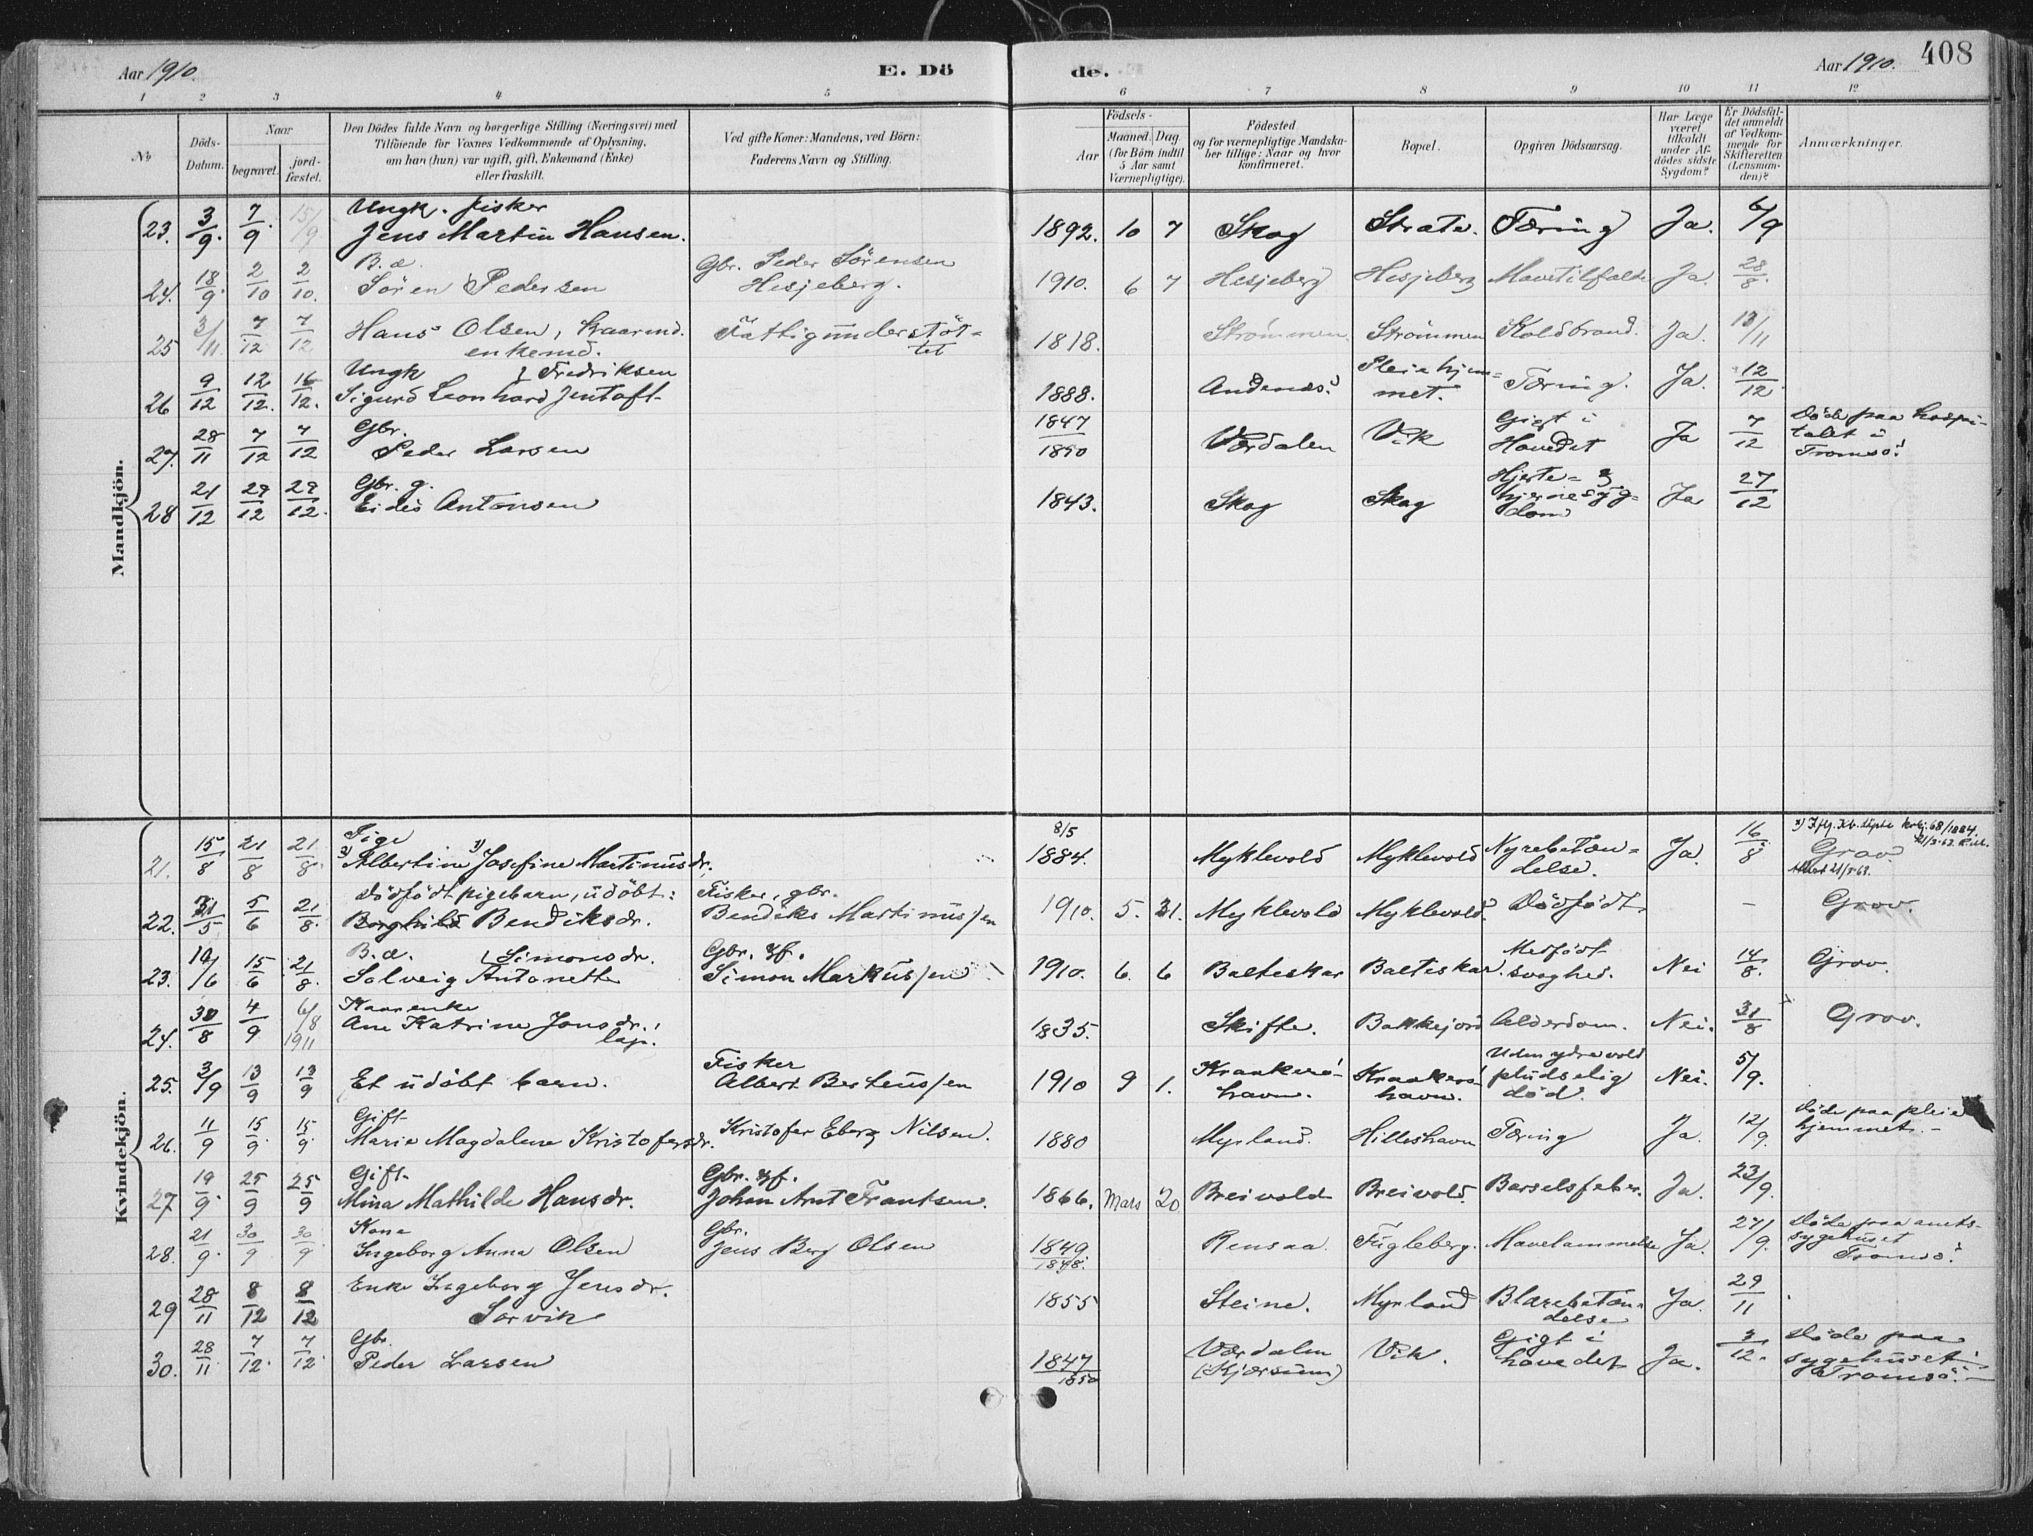 Aar 1910.
E. Dö
de.
Aar 1910.
408
1 2 3 4 5 6 7 8 9 10 11 12
No
Döds-Datum.
Naar
begravet.
jord-fæstet.
Den Dödes fulde Navn og borgerlige Stilling (Næringsvei) med
Tilföiende for Voxnes Vedkommende af Oplysning,
om han (hun) var ugift, gift, Enkemand (Enke)
eller fraskilt.
Ved gifte Koner: Mandens, ved Börn:
Faderens Navn og Stilling.
Födsels-
Aar
Maaned. Dag.
(for Börn indtil
5 Aar samt
Værnepligtige).
Födested
og for værnepligtige Mandska-
ber tillige: Naar og hvor
konfirmeret.
Bopæl.
Opgiven Dödsaarsag.
Har Læge
været
tilkaldt
under Af-
dödes sidste
Sygdom?
Er Dödsfal-
det anmeldt
af Vedkom-
mende for
Skifteretten
(Lensman-
den)?
Anmærkninger.
Mandkjön.
23. 3/9. 7/9. 15/9 Ungk. fisker Jens Martin Hansen. 1892. 10 7 Skog Strate. Tæring Ja. 6/9
24. 18/9. 2/10 2/10. B. æ. Sören Pedersen Gbr. Peder Sörensen Hesjeberg. 1910. 6 7 Hesjeberg Hesjeberg Mavetilfælde Ja. 28/8.
25 3/11. 7/12 7/12 Hans Olsen, kaarmd. enkemd. Fattigunderstøt-tet 1818. Strömmen. Strömmen Koldbrand. Ja. 13/11
26 9/12 12/12. 16/12. Ungk Sigurd Leonhard Jentoft Fredriksen 1888. Andenæs. Pleiehjem-met. Tæring. Ja. 12/12
27. 28/11 7/12 7/12 Gbr. Peder Larsen 1847/1850 Værdalen Vik Gigt i Hovedet Ja 7/12 Döde paa hospi-talet i Tromsö.
28 21/12 29/12 29/12. Gbr. g. Eidis Antonsen 1843. Skog Skog Hjerte- & hjernesyg-dom Ja 27/12
Kvindekjön.
21. 15/8 21/8 21/8. Pige Albertine Josefine Martinusdr. 8/5 1884. Myklevold Myklevold Nyrebetæn-delse. Ja. 16/8 Grov
22. 31/5 5/6 21/8. Dödfödt pigebarn, udöbt: Borghild Bendiksdr. Fisker, gbr. Bendiks Martinussen 1910. 5. 31. Myklevold Myklevold. Dödfödt. - Grov.
23. 10/6 15/6 21/8. B. æ. Solveig Antonette Simonsdr. Gbr. & f. Simon Markussen 1910. 6. 6 Balteskar Balteskar. Medfödt svaghed. Nei 14/8. Grov.
24. 30/8 4/9 6/8 1911 Kaarenke Ane Katrine Jonsdr., lap. 1835. Skifte. Bakkejord Alderdom. Nei. 31/8 Grov.
25. 3/9 13/9 13/9 Et udöbt barn. Fisker Albert Berteussen 1910 9 1. Kraakerö-havn. Kraakerö-havn. Uden ydre vold pludselig död. Nei. 5/9.
26. 11/9 15/9. 15/9. Gift Marie Magdalene Kristofersdr. Kristofer Eberg Nilsen. 1880 Myrland. Hilleshavn Tæring Ja. 12/9. Döde paa pleie hjemmet. -
27 19/9. 25/9 25/9 Gift. Mina Mathilde Hansdr. Gbr. & f. Johan Arnt Frantsen. 1866. Mars 20 Breivold Breivold. Barselsfeber. Ja. 23/9.
28. 21/9. 30/9 30/9. Kone Ingeborg Anna Olsen Gbr. Jens Berg Olsen 1849. 1848. Rensaa. Fugleberg. Mavelammelse Ja. 27/9. Döde paa amts-sygehuset Tromsö.
29 28/11 8/12 8/12 Enke Ingeborg Jensdr. Sørvik 1855 Steine. Myrland Blærebetæn-delse Ja. 29/11.
30. 28/11. 7/12. 7/12. Gbr. Peder Larsen 1847/1850 Værdalen Vik. Gigt i hovedet Ja. 3/12. Döde paa sygehuset i Tromsö. -